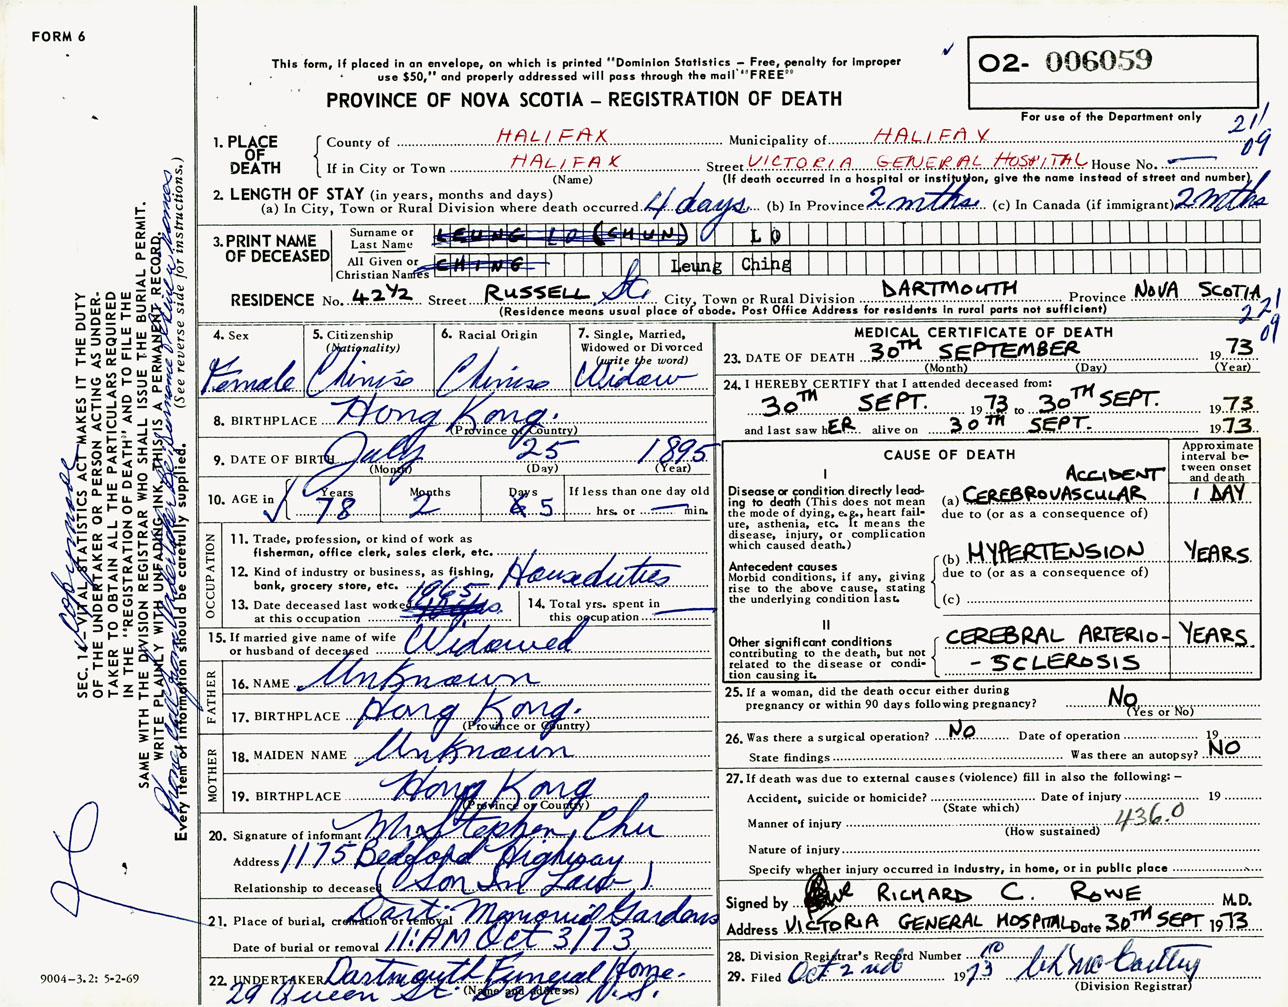 FORM 6
This form, if placed in an envelope, on which is printed "Dominion Statistics – Free, penalty for improper
use $50," and properly addressed will pass through the mail "FREE"
02- 006059
PROVINCE OF NOVA SCOTIA – REGISTRATION OF DEATH
For use of the Department only
21/
09
1. PLACE OF DEATH
County of HALIFAX Municipality of HALIFAX
If in City or Town HALIFAX Street VICTORIA GENERAL HOSPITAL House No. —
(Name) (If death occurred in a hospital or institution, give the name instead of street and number)
2. LENGTH OF STAY (in years, months and days)
(a) In City, Town or Rural Division where death occurred 4 days (b) In Province 2 mths (c) In Canada (if immigrant) 2 mths
3. PRINT NAME OF DECEASED
Surname or Last Name LEUNG LO (CHUN) LO
All Given or Christian Names CHING Leung Ching
RESIDENCE No. 42½ Street RUSSELL St. City, Town or Rural Division DARTMOUTH Province NOVA SCOTIA
(Residence means usual place of abode. Post Office Address for residents in rural parts not sufficient)
22/
09
4. Sex Female
5. Citizenship (Nationality) Chinise
6. Racial Origin Chinise
7. Single, Married, Widowed or Divorced (write the word) Widow
8. BIRTHPLACE Hong Kong.
(Province or Country)
9. DATE OF BIRTH July 25 1895
(Month) (Day) (Year)
10. AGE in Years 78 Months 2 Days 5 If less than one day old hrs. or — min.
OCCUPATION
11. Trade, profession, or kind of work as
fisherman, office clerk, sales clerk, etc.
12. Kind of industry or business, as fishing,
bank, grocery store, etc. Houseduties
13. Date deceased last worked at this occupation 1965
14. Total yrs. spent in this occupation —
15. If married give name of wife
or husband of deceased Widowed
FATHER
16. NAME Unknown
17. BIRTHPLACE Hong Kong.
(Province or Country)
MOTHER
18. MAIDEN NAME Unknown
19. BIRTHPLACE Hong Kong
(Province or Country)
20. Signature of informant Mr Stephen Chu
Address 1175 Bedford Highway
Relationship to deceased (Son In Law)
21. Place of burial, cremation or removal Dart. Memorial Gardens
Date of burial or removal 11:AM Oct 3/73
22. UNDERTAKER Dartmouth Funeral Home.
(Name and address)
29 Queen St. Dart N.S.
MEDICAL CERTIFICATE OF DEATH
23. DATE OF DEATH 30TH SEPTEMBER 1973
(Month) (Day) (Year)
24. I HEREBY CERTIFY that I attended deceased from:
30TH SEPT. 1973 to 30TH SEPT. 1973
and last saw hER alive on 30TH SEPT. 1973
CAUSE OF DEATH
Approximate interval between onset and death
I
Disease or condition directly leading to death (This does not mean the mode of dying, e.g., heart failure, asthenia, etc. It means the disease, injury, or complication which caused death.)
(a) CEREBROVASCULAR ACCIDENT 1 DAY
due to (or as a consequence of)
Antecedent causes
Morbid conditions, if any, giving rise to the above cause, stating the underlying condition last.
(b) HYPERTENSION YEARS
due to (or as a consequence of)
(c)
II
Other significant conditions
contributing to the death, but not related to the disease or condition causing it.
CEREBRAL ARTERIO-
-SCLEROSIS YEARS
25. If a woman, did the death occur either during
pregnancy or within 90 days following pregnancy? No
(Yes or No)
26. Was there a surgical operation? No Date of operation 19
State findings Was there an autopsy? NO
27. If death was due to external causes (violence) fill in also the following: –
Accident, suicide or homicide? Date of injury 19
(State which)
Manner of injury 436.0
(How sustained)
Nature of injury
Specify whether injury occurred in industry, in home, or in public place
Signed by RICHARD C. ROWE M.D.
Address VICTORIA GENERAL HOSPITAL Date 30TH SEPT 1973
28. Division Registrar's Record Number
29. Filed Oct 2nd 1973
(Division Registrar)
SEC. 17. VITAL STATISTICS ACT MAKES IT THE DUTY
OF THE UNDERTAKER OR PERSON ACTING AS UNDER-
TAKER TO OBTAIN ALL THE PARTICULARS REQUIRED
IN THE "REGISTRATION OF DEATH" AND TO FILE THE
SAME WITH THE DIVISION REGISTRAR WHO SHALL ISSUE THE BURIAL PERMIT.
WRITE PLAINLY WITH UNFADING INK. THIS IS A PERMANENT RECORD.
Every item of information should be carefully supplied. (See reverse side for instructions.)
9004–3.2: 5-2-69